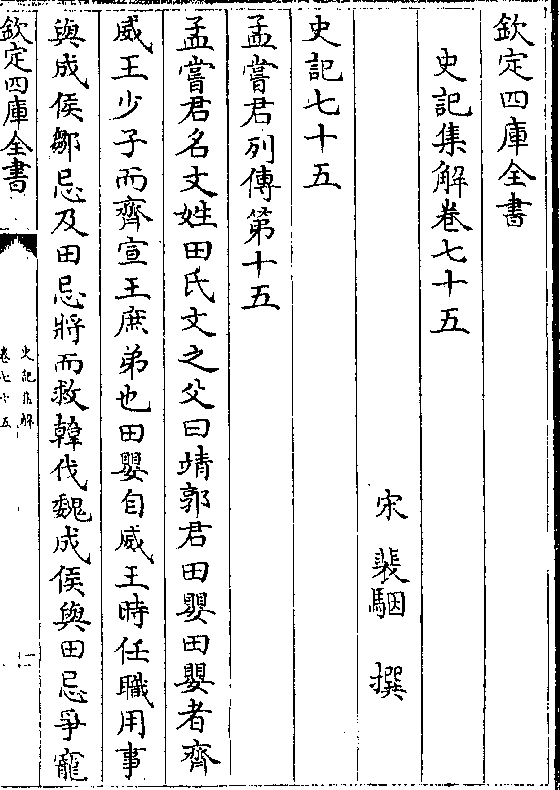 欽定四庫全書
史記集解卷七十五
宋 裴駰 撰
史記七十五
孟嘗君列傳第十五
孟嘗君名文姓田氏文之父曰靖郭君田嬰田嬰者齊
威王少子而齊宣王庶弟也田嬰自威王時任職用事
與成侯鄒忌及田忌將而救韓伐魏成侯與田忌爭寵
欽定四庫全書
史記集解
卷七十五
一